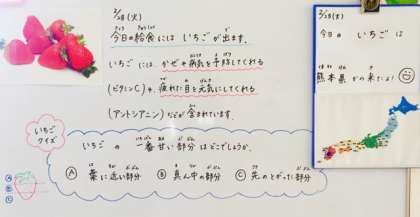 2/28(火)
今日の給食には いちごが出ます。
いちごには、かぜや病気を予防してくれる
(ビタミンC)や、疲れた目を元気にしてくれる
(アントシアニン)などが含まれています。
いちご
クイズ
いちごの一番甘い部分はどこでしょうか。
Ⓐ 葉に近い部分 Ⓑ 真ん中の部分 Ⓒ 先のとがった部分
Ⓐ
Ⓑ
Ⓒ
2/28(火)
今日の いちご は
熊本県から来たよ!